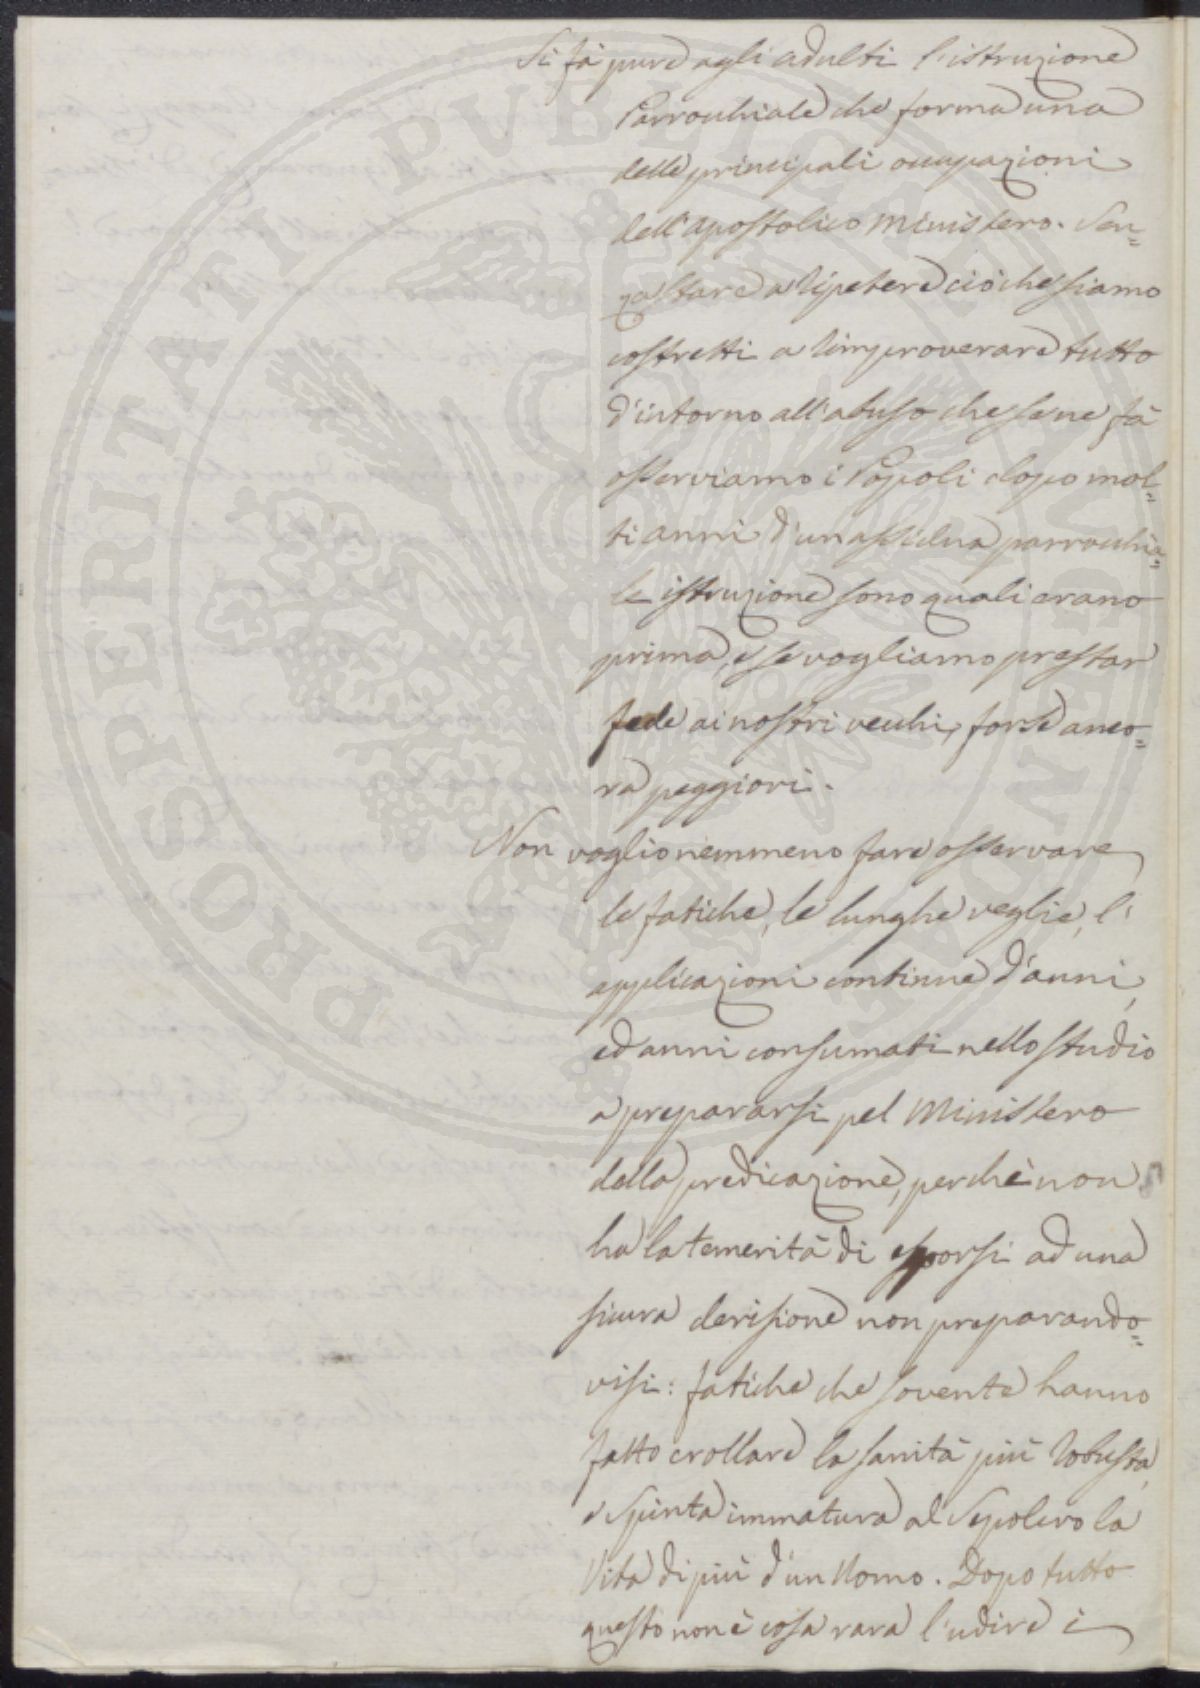 Si fà pure agli adulti l'istruzione
Parrochiale che forma una
delle principali occupazioni
dell'apostolico Ministero. Sen=
za stare a ripetere ciò che siamo
costretti a rimproverare tutto
d'intorno all'abuso che se ne fà
osserviamo i Popoli dopo mol=
ti anni d'un assidua parrochia=
le istruzione sono quali erano
prima, e se vogliamo prestar
fede ai nostri vecchi, forse anco=
ra peggiori.
Non voglio nemmeno fare osservare
le fatiche, le lunghe veglie, l'
applicazioni continue d'anni,
ed anni consumati nello studio
a prepararsi pel Ministero
della predicazione, perchè non
ha la temerità di esporsi ad una
sicura derisione non preparando=
visi: fatiche che sovente hanno
fatto crollare la sanità più robusta,
e spinta immatura al Sepolcro la
Vita di più d'un Uomo. Dopo tutto
questo non è cosa rara l'udire i
PROSPERITATI PUBLICAE AUGENDAE